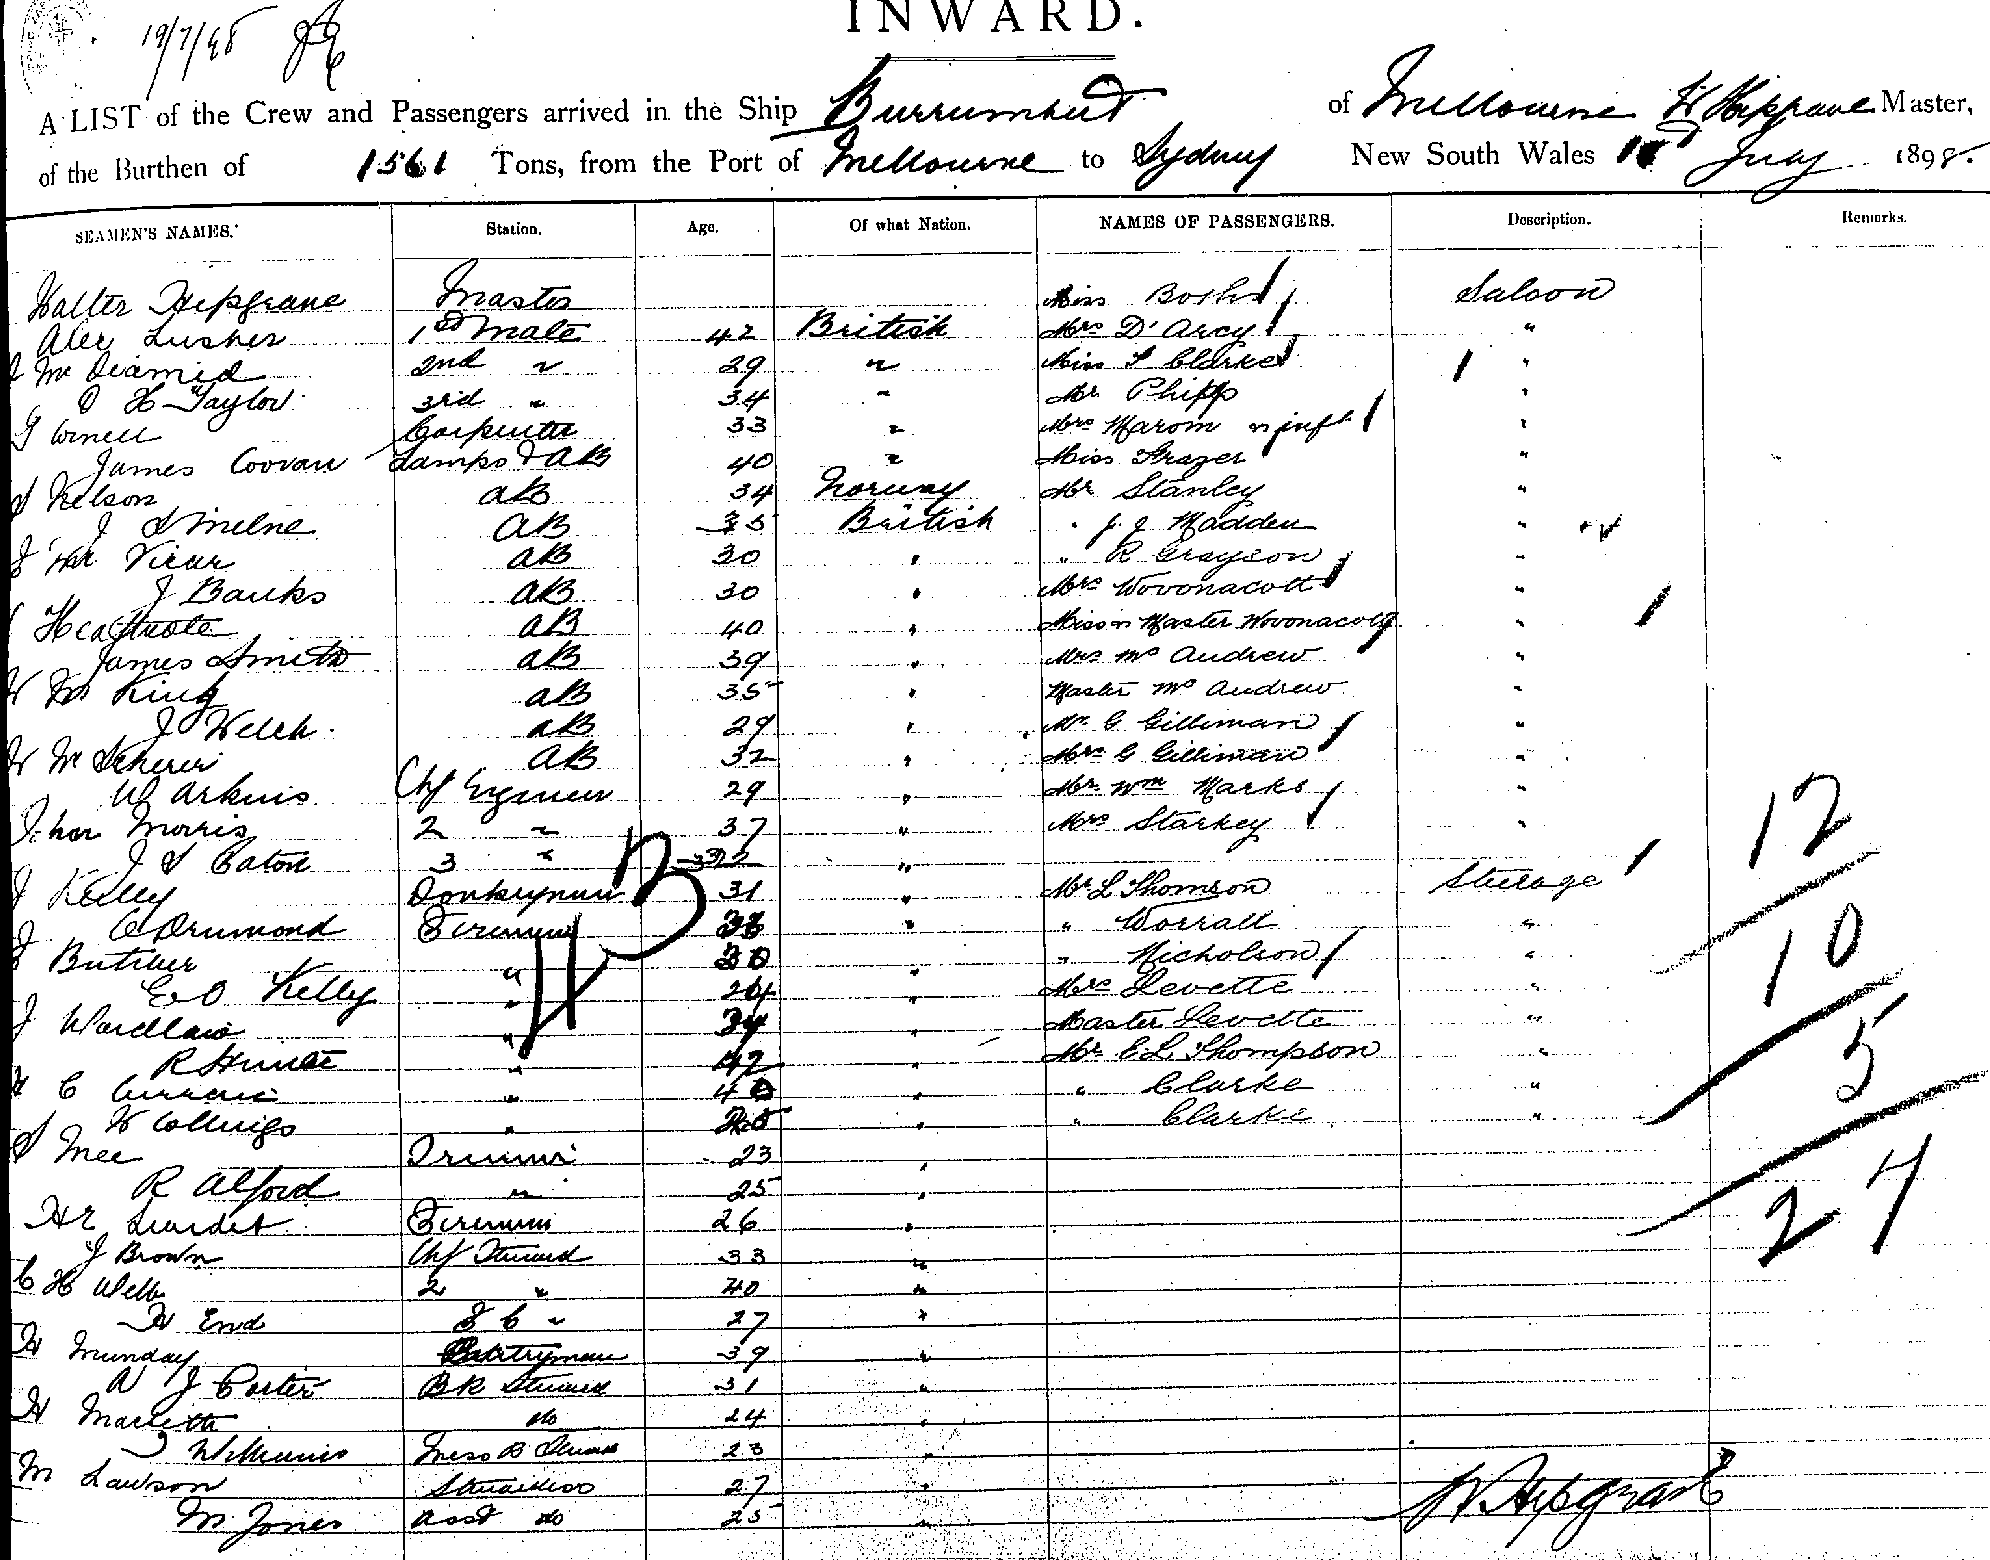 INWARD.
19/7/98
A LIST of the Crew and Passengers arrived in the Ship Burrumbeet of Melbourne H Hipgrave Master,
of the Burthen of 1561 Tons, from the Port of Melbourne to Sydney New South Wales July 1898.
SEAMEN'S NAMES. Station. Age. Of what Nation. NAMES OF PASSENGERS. Description. Remarks.
Walter Hipgrave Master Miss Saloon
Alex Lusher 1st Mate 42 British Mrs D'Arcy "
Mc Diamid 2nd " 29 " Miss Clarke "
H Taylor 3rd " 34 " Mr Phipp "
G Carpenter 33 " Mrs Marom "
James Lamps & AB 40 " Miss Frazer "
Nelson AB 34 Norway Mr Stanley "
J S Milne AB 35 British " J. J Madden "
Mc Vicar AB 30 " " R Grayson "
J Banks AB 30 " Mrs Wovonacott "
Heathcote AB 40 " Miss n Master Wovonacott "
James Smith AB 39 " Mrs Mc Andrew "
King AB 35 " Master Mc Andrew "
J Welch AB 29 " Mr G Gilliman "
AB 32 " Mrs G Gilliman "
W Arkins Chf Engineer 29 " Mr Wm Marks "
Morris 2 " 37 " Mrs Starkey "
J S Eaton 3 " 32 " 12
J Kelly Donkeyman 31 " Mr L Thomson Steerage
C Drumond Firemen " " Worrall "
Butcher " 30 " " Nicholson " 10
Kelly " 24 " Mrs Levette "
J Wardlaw " 34 " Master Levette "
R Hunter " 42 " Mr E. L. Thompson " 5
C " 40 " " Clarke "
W Collings " " " Clarke "
S Mee Trimmer 23 "
R Alford " 25 " 27
Liardet Firemen 26 "
J Brown Chf Steward 33 "
C H Webb 2 " 40 "
H End F C " 27 "
H Munday Pantryman 39 "
A J Porter BR Steward 31 "
H do 24 "
J Williams Mess R Steward 23 "
M Lawson Stewardess 27 "
M Jones asst do 25 "
W. Hipgrave
43